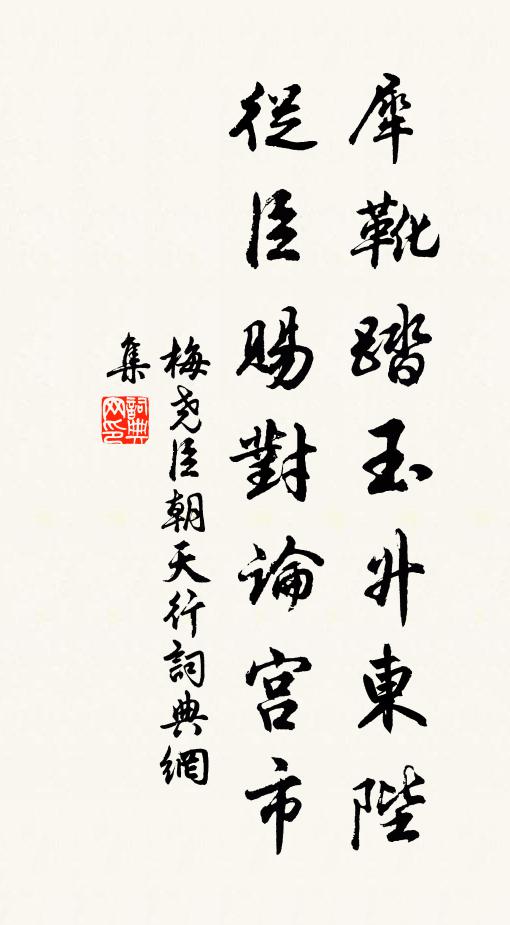 犀靴踏玉升東陛
從臣賜對論宫市
梅堯臣朝天行詞典網
集
詞典网印